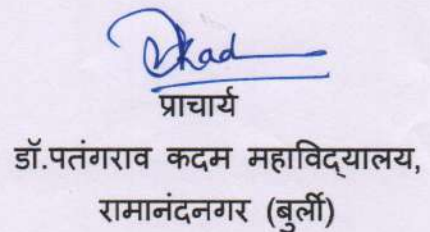 प्राचार्य
डॉ.पतंगराव कदम महाविद्‌यालय,
रामानंदनगर (बुर्ली)